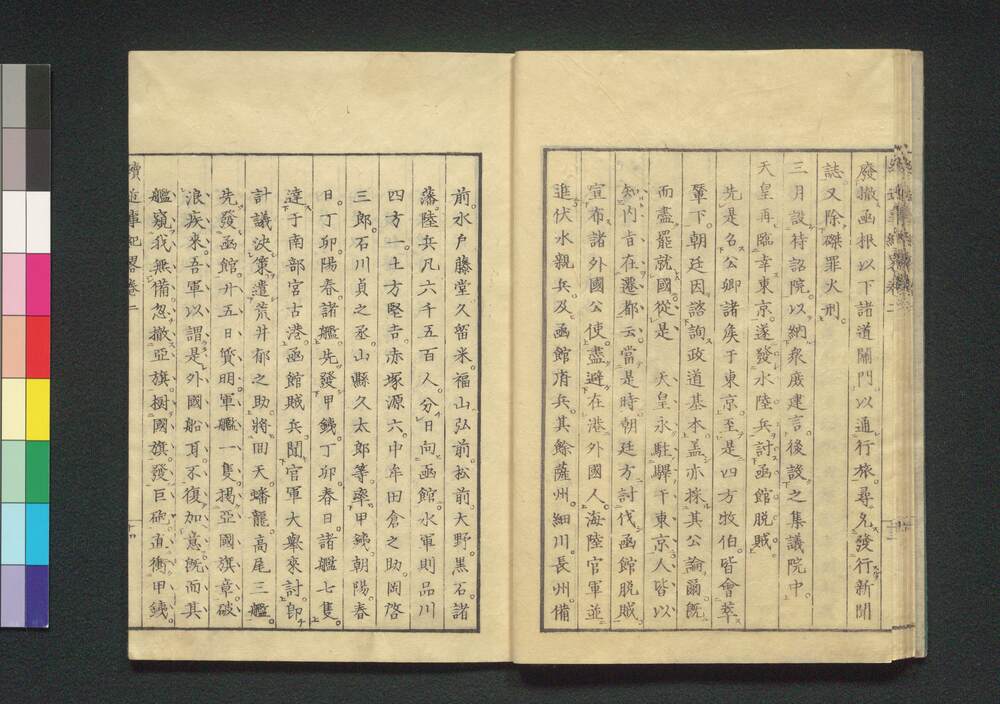 廢撤函根以下諸道關門以通行旅尋允發行新聞
誌又除磔罪火刑
三月設待詔院以納衆庶建言後設之集議院中
天皇再臨幸東京遂發水陸兵討函館脱賊
先是名公卿諸矦于東京至是四方牧伯皆會萃
輦下朝廷因諮詢政道基本盖亦採其公論爾既
而盡罷就國從是　天皇永駐驆于東京人皆以
知内旨在遷都云當是時朝廷方討伐函館脱賊
宣布諸外國公使盡避在港外國人海陸官軍並
進伏水親兵及函館府兵其餘薩州細川長州備
前水戸藤堂久留米福山弘前松前大野黒石諸
藩陸兵凡六千五百人分日向函館水軍則品川
四方一土方堅吉赤塚源六中牟田倉之助岡啓
三郎石川貞之丞山縣久太郎等率甲銕朝陽春
日丁卯陽春諸艦先發甲銕丁卯春日諸艦七隻
達于南部宮古港函館賊兵聞官軍大擧來討卽
計議決策遣荒井郁之助將囘天蟠龍高尾三艦
先發函館廿五日質明軍艦一隻揭亞國旗章破
浪疾來吾軍以謂是外國船耳不復加意既而其
艦窺我無備忽撤亞旗樹國旗發巨砲直衝甲銕
續近事紀畧卷二